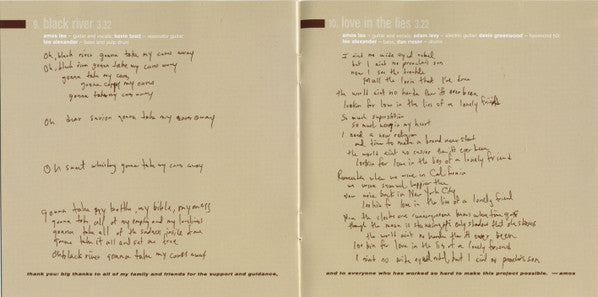 9. black river 3.32
amos lee — guitar and vocals; kevin breit — resonator guitar
lee alexander — bass and pulp drum
Oh, black river gonna take my cares away
Oh, black river gonna take my cares away
gonna take my cares
gonna carry my cares
gonna take my cares away
Oh dear savior gonna take my cares away
Oh sweet whiskey gonna take my cares away
gonna take my bottle, my bible, my
gonna take all of my empty and my
gonna take all of the sadness inside
gonna take it all and set me free
Oh black river gonna take my cares away
thank you: big thanks to all of my family and friends for the support and guidance,
10. love in the lies 3.22
amos lee — guitar and vocals; adam levy — electric guitar; devin greenwood — hammond b3;
lee alexander — bass, dan rieser — drums
I aint no wide eyed rebel
but I aint no preachers son
now I see the trouble
all the lovin that I've done
the world aint no harder than its ever been
lookin for love in the lies of a lonely friend
So much superstition
So much worry in my heart
I need a new religion
and time to make a brand new start
the world aint no easier than its ever been
lookin for love in the lies of a lonely friend
Remember when we were in California
we were several happier then
now were back in New York City
lookin for love in the lies of a lonely friend
though the moon is
the world aint no harder than its ever been
lookin for love in the lies of a lonely friend
I aint no wide eyed rebel, but I aint no preachers son
and to everyone who has worked so hard to make this project possible. —amos